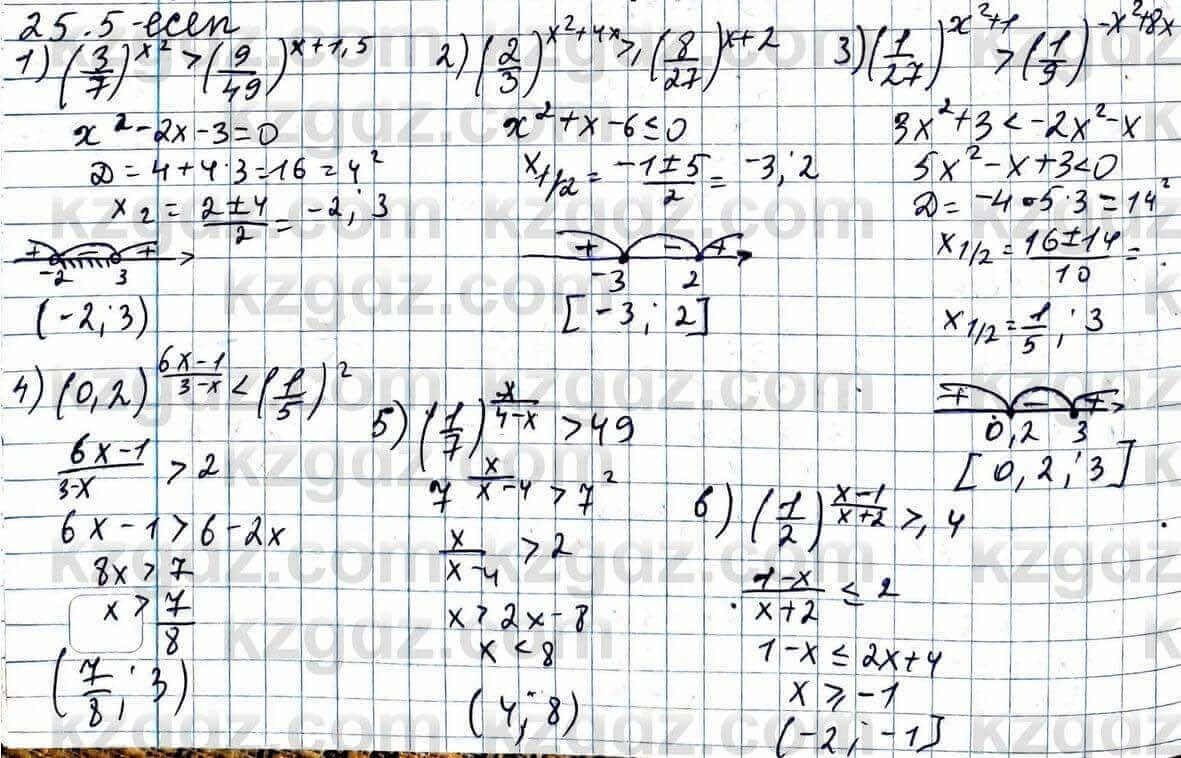 25.5-есеп
1) (3/7)^{x²} > (9/49)^{x+1,5}
x² - 2x - 3 = 0
D = 4 + 4·3 = 16 = 4²
x₂ = (2±4)/2 = -2; 3
+ - +
-2 3
(-2; 3)
2) (2/3)^{x²+4x} ≥ (8/27)^{x+2}
x² + x - 6 ≤ 0
x₁/₂ = (-1±5)/2 = -3; 2
+ - +
-3 2
[-3; 2]
3) (1/27)^{x²+1} > (1/9)^{-x²+8x}
3x² + 3 < -2x² - x
5x² - x + 3 < 0
D = -4•5·3 = 14²
x₁/₂ = (16±14)/10 =
x₁/₂ = 1/5; 3
+ - +
0,2 3
[0,2; 3]
4) (0,2)^{(6x-1)/(3-x)} < (1/5)²
(6x-1)/(3-x) > 2
6x - 1 > 6 - 2x
8x > 7
x > 7/8
(7/8; 3)
5) (1/7)^{x/(4-x)} > 49
7^{x/(x-4)} > 7²
x/(x-4) > 2
x > 2x - 8
x < 8
(4; 8)
6) (1/2)^{(x-1)/(x+2)} ≥ 4
(1-x)/(x+2) ≤ 2
1-x ≤ 2x+4
x ≥ -1
(-2; -1]
kzgdz.com